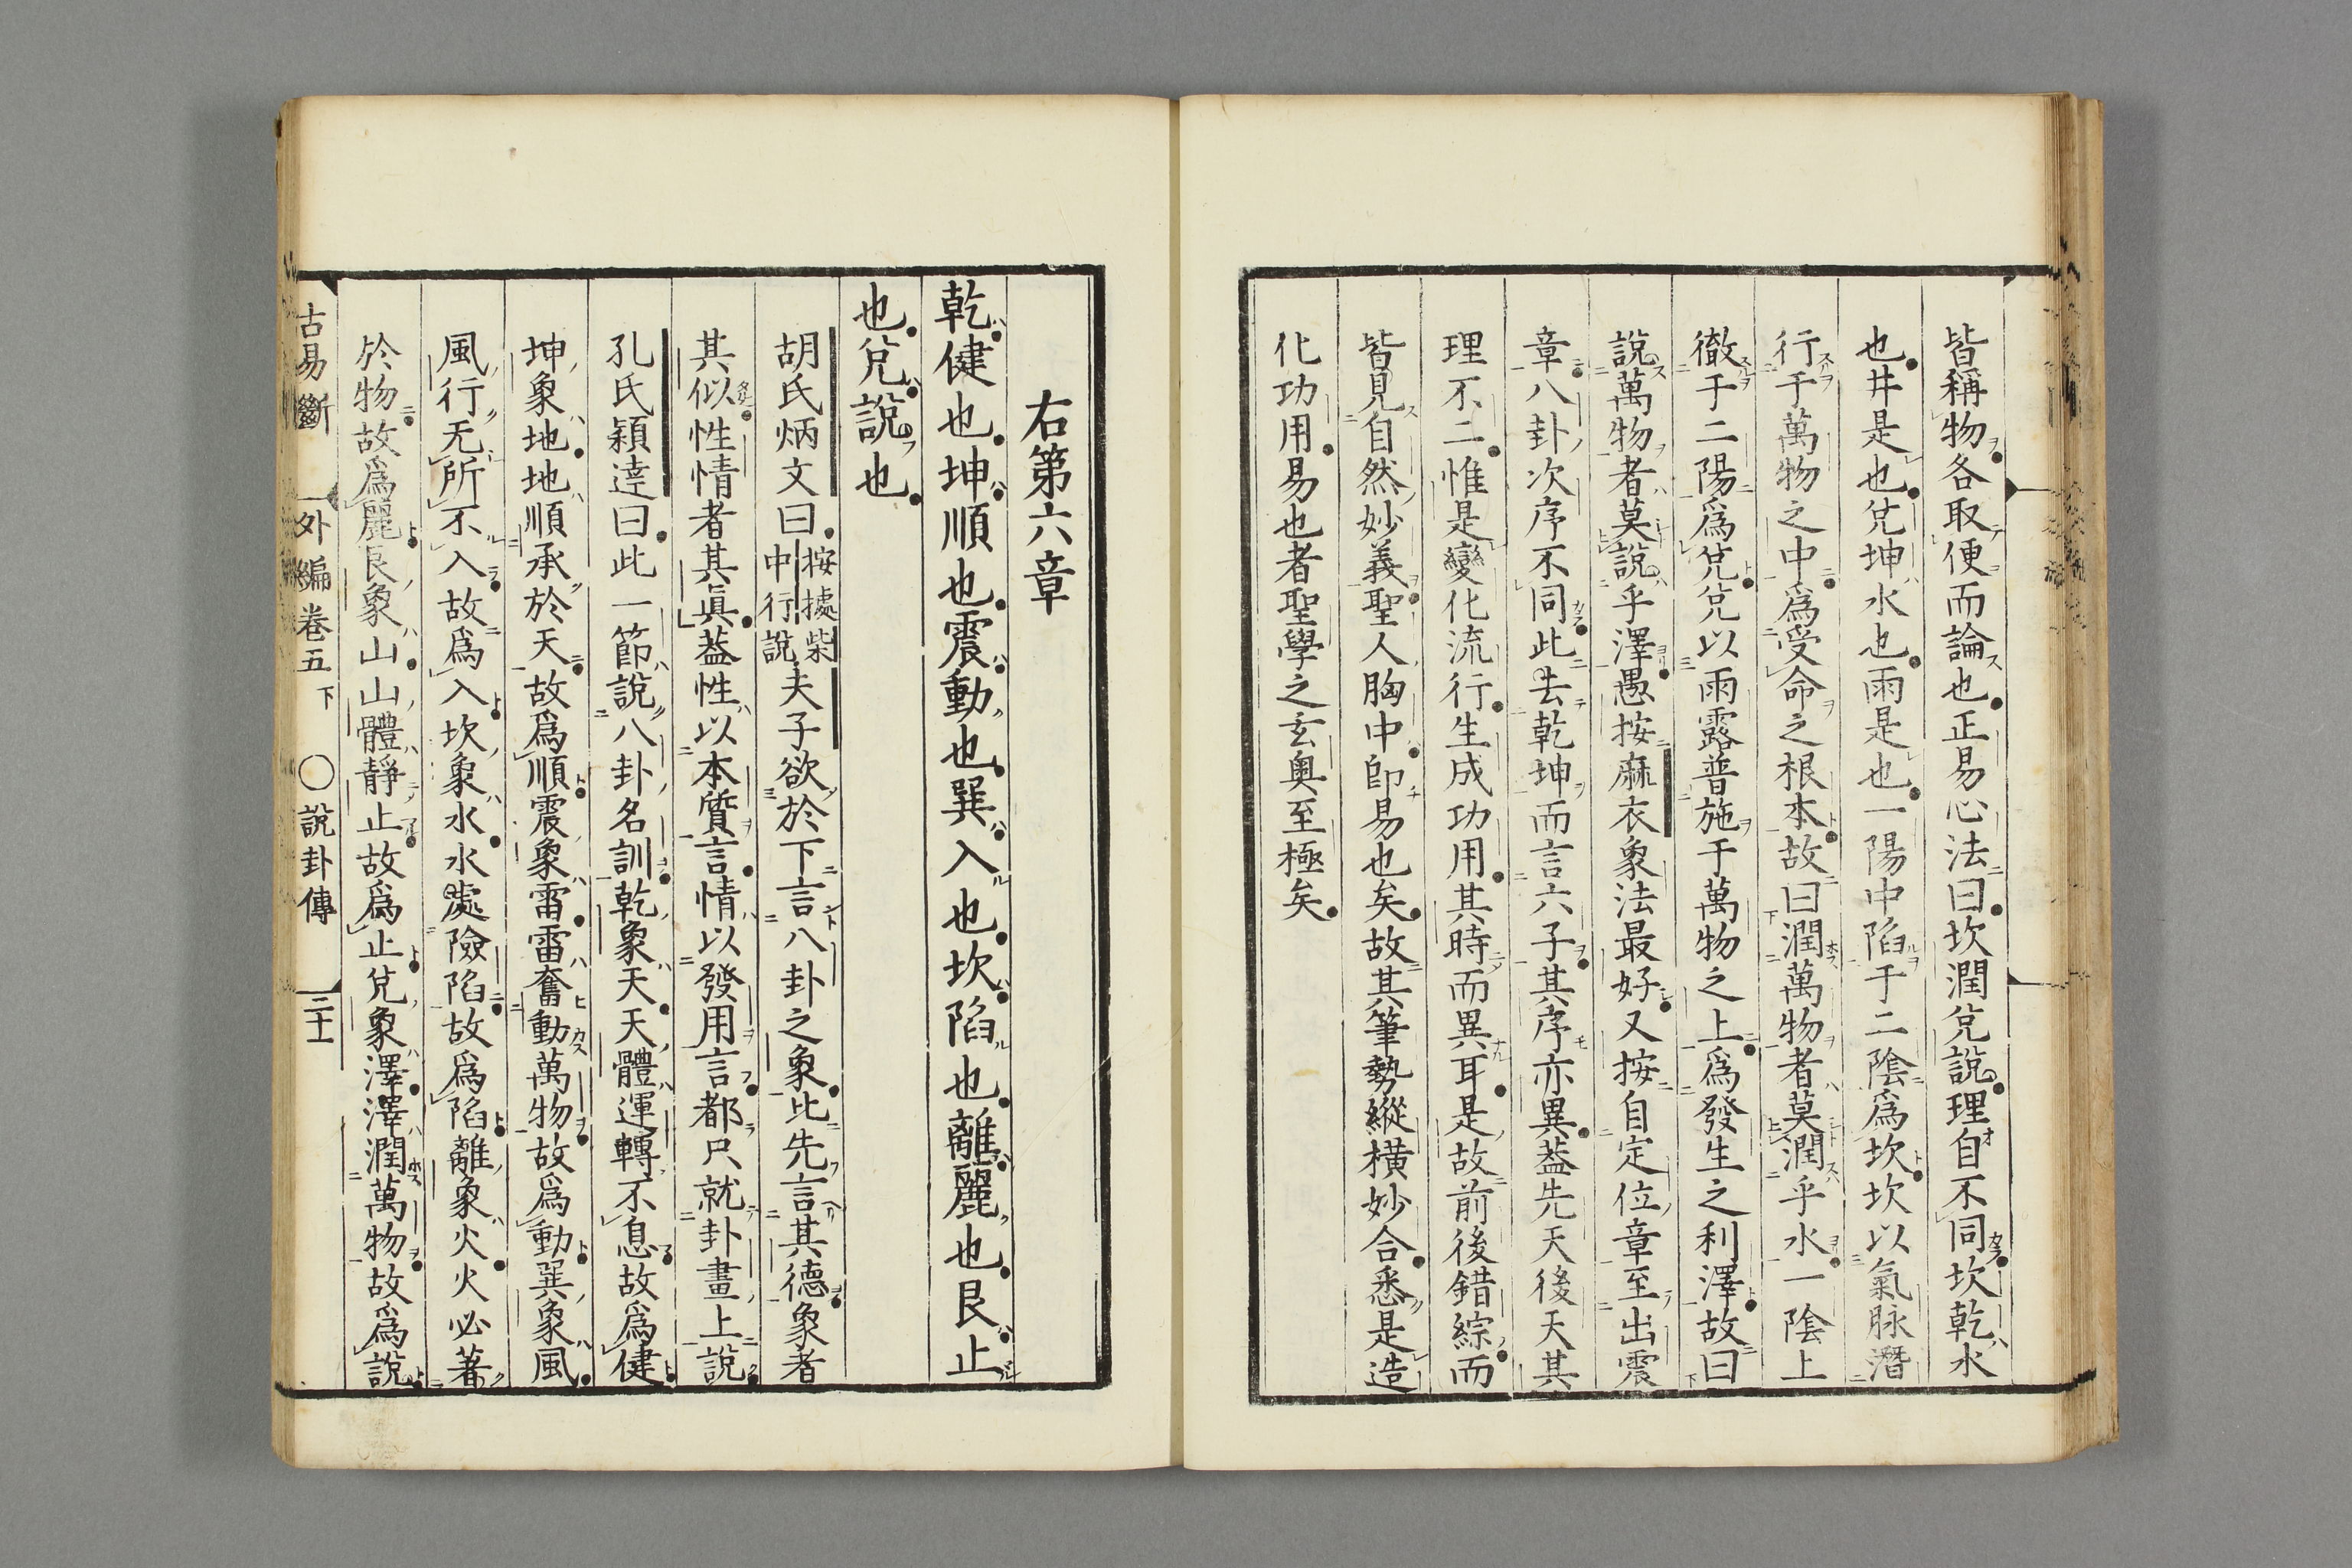 皆稱物各取便而論也正易心法曰坎潤兌說理自不同坎乾水
也井是也兌坤水也雨是也一陽中陷于二陰爲坎坎以氣脉潛
行于萬物之中爲受命之根本故曰潤萬物者莫潤乎水一陰上
徹于二陽爲兌兌以雨露普施于萬物之上爲發生之利澤故曰
說萬物者莫說乎澤愚按麻衣象法最好又按自定位章至出震
章八卦次序不同此去乾坤而言六子其序亦異蓋先天後天其
理不二惟是變化流行生成功用其時而異耳是故前後錯綜而
皆見自然妙義聖人胸中卽易也矣故其筆勢縱橫妙合悉是造
化功用易也者聖學之玄奧至極矣
右第六章
乾健也坤順也震動也巽入也坎陷也離麗也艮止
也兌說也
胡氏炳文曰按據柴中行說夫子欲於下言八卦之象比先言其德象者
其似性情者其眞蓋性以本質言情以發用言都只就卦畫上說
孔氏穎達曰此一節說八卦名訓乾象天天體運轉不息故爲健
坤象地地順承於天故爲順震象雷雷奮動萬物故爲動巽象風
風行无所不入故爲入坎象水水處險陷故爲陷離象火火必著
於物故爲麗艮象山山體靜止故爲止兌象澤澤潤萬物故爲說
古易斷 外編卷五下 〇說卦傳 三十一